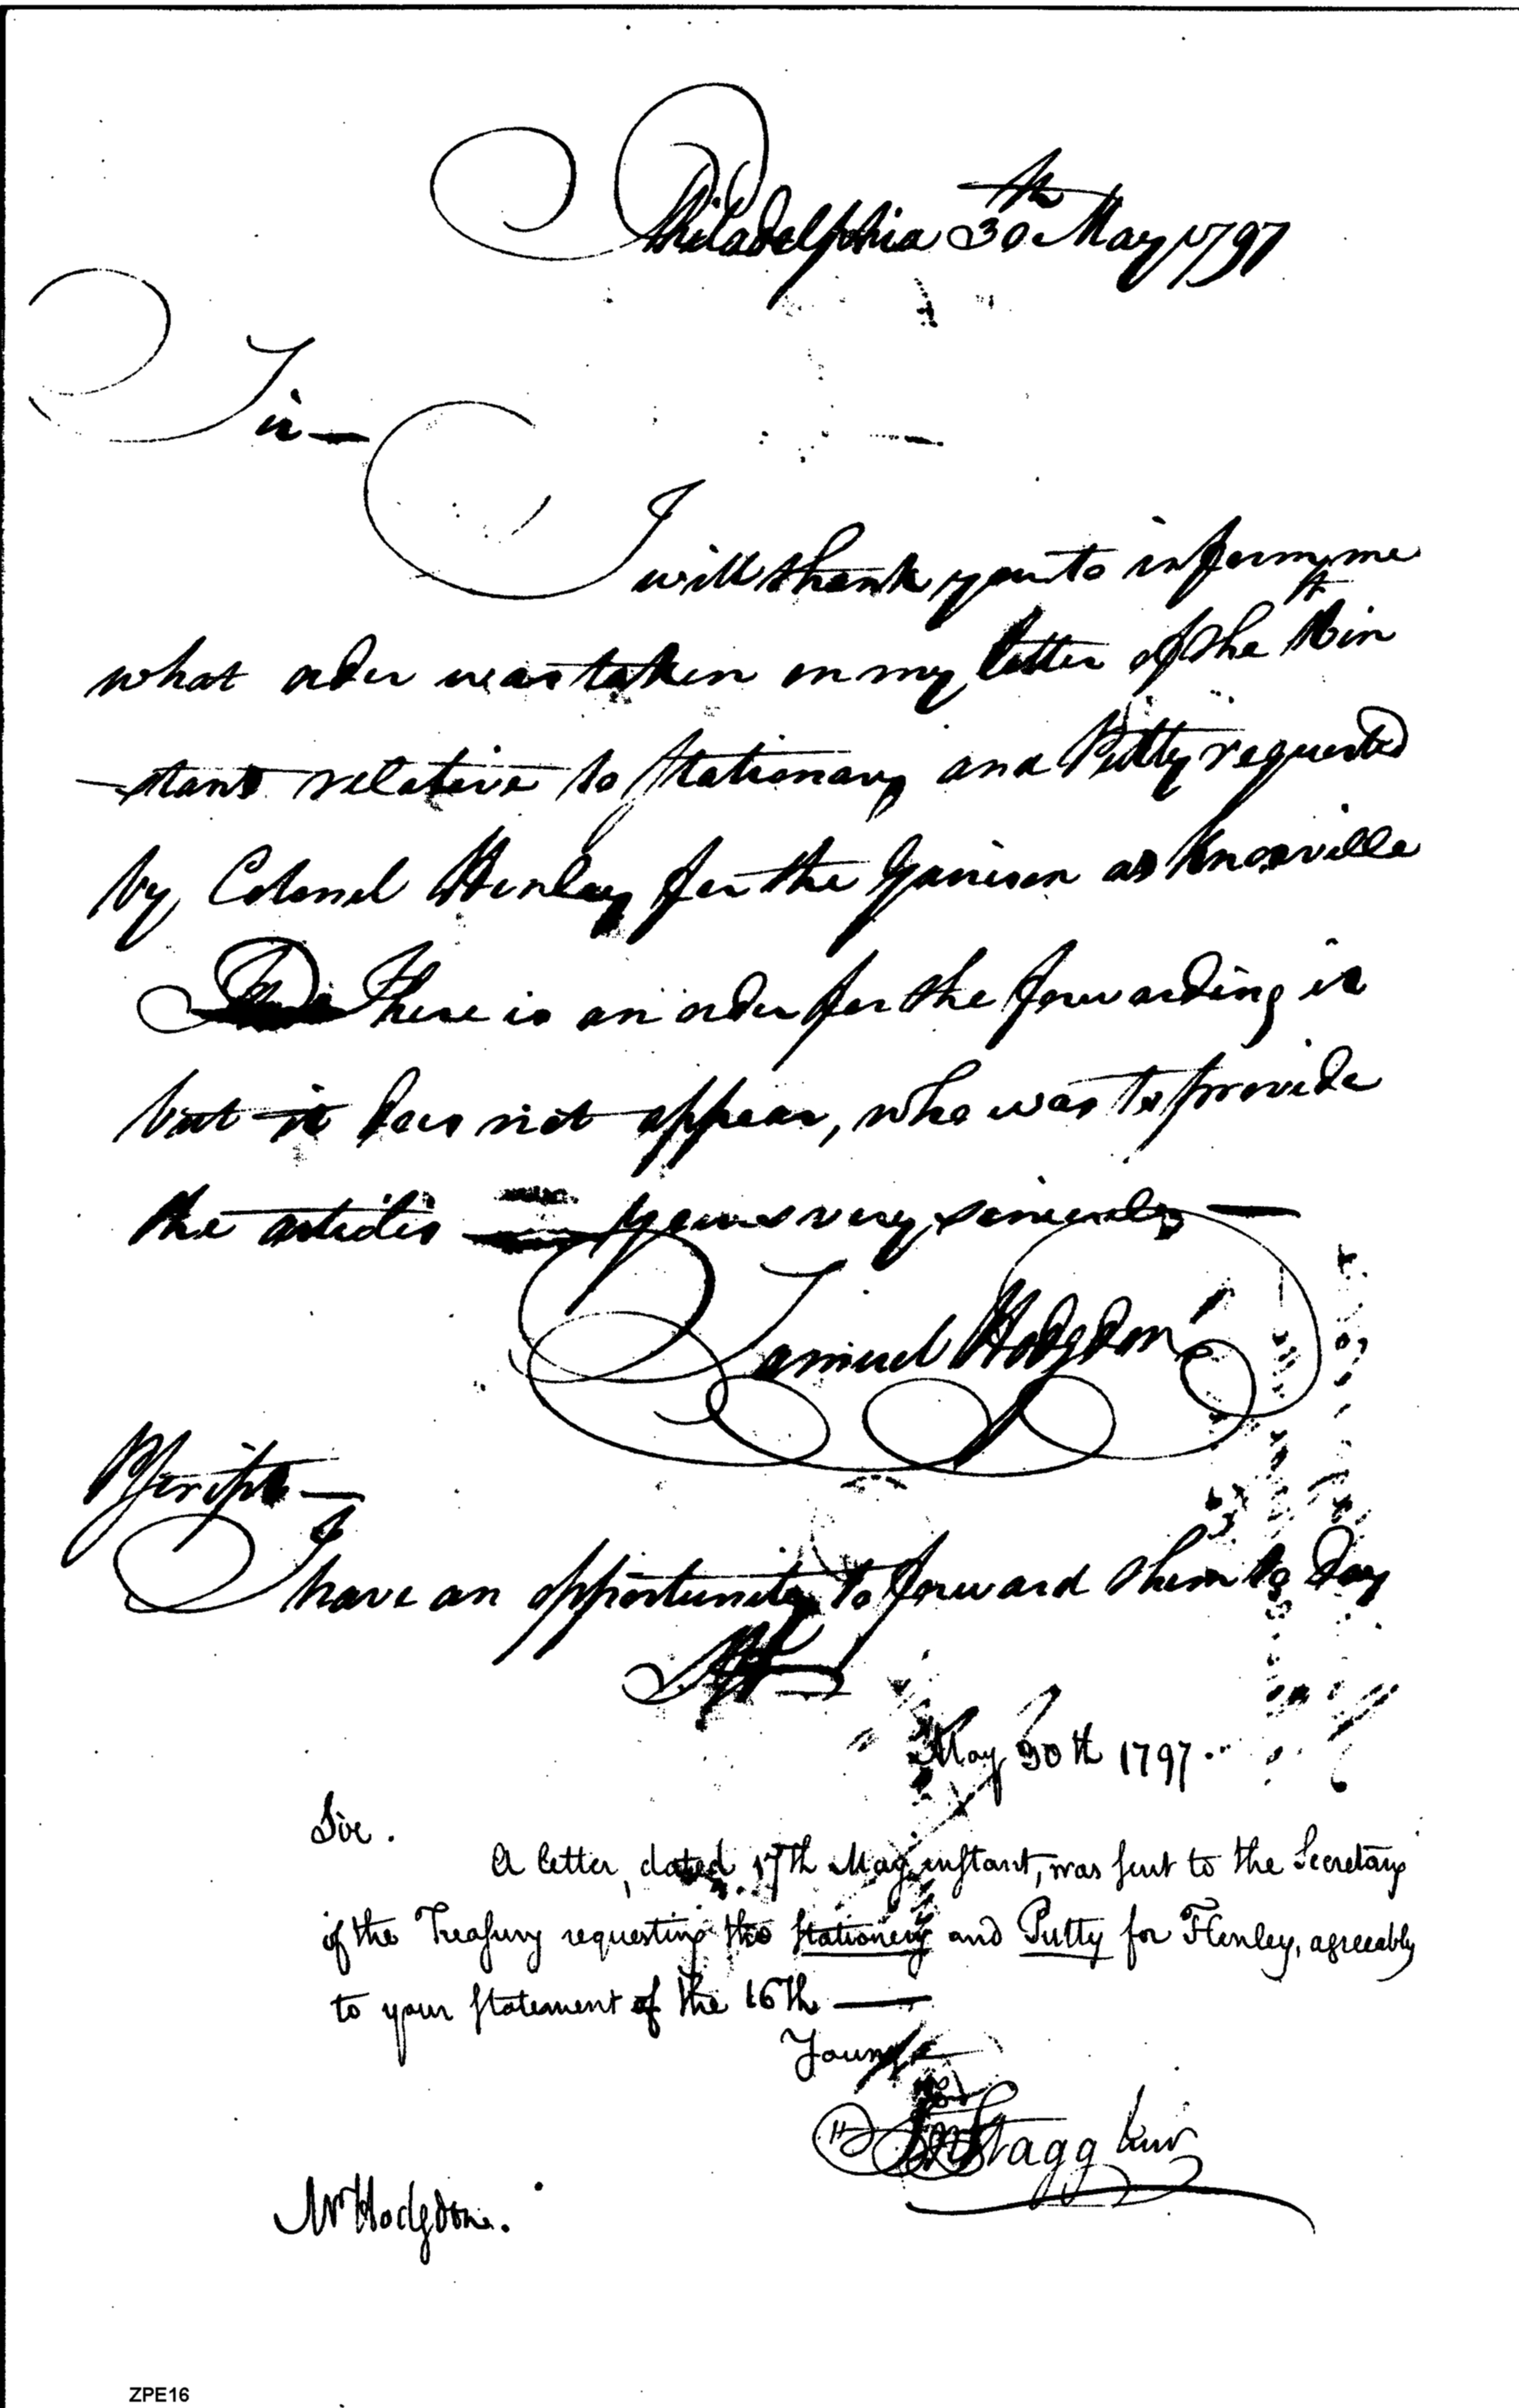 Philadelphia 30th May 1797
Sir—
I will thank you to inform me
what order was taken on my letter of the in
-stant relative to Stationary and Putty requested
by Colonel Henley for the Garrison at Knoxville
There is an order for the forwarding it
but it does not appear, who was to provide
the articles — yours very sincerely —
Samuel Hodgdon
PScript—
I have an opportunity to forward them to Day
SH—
May 30th 1797.
Sir.
A letter, dated 17th May instant, was sent to the Secretary
of the Treasury requesting the Stationery and Putty for Henley, agreeably
to your Statement of the 16th —
Yours
Jno Stagg Junr
Mr Hodgdon.
ZPE16